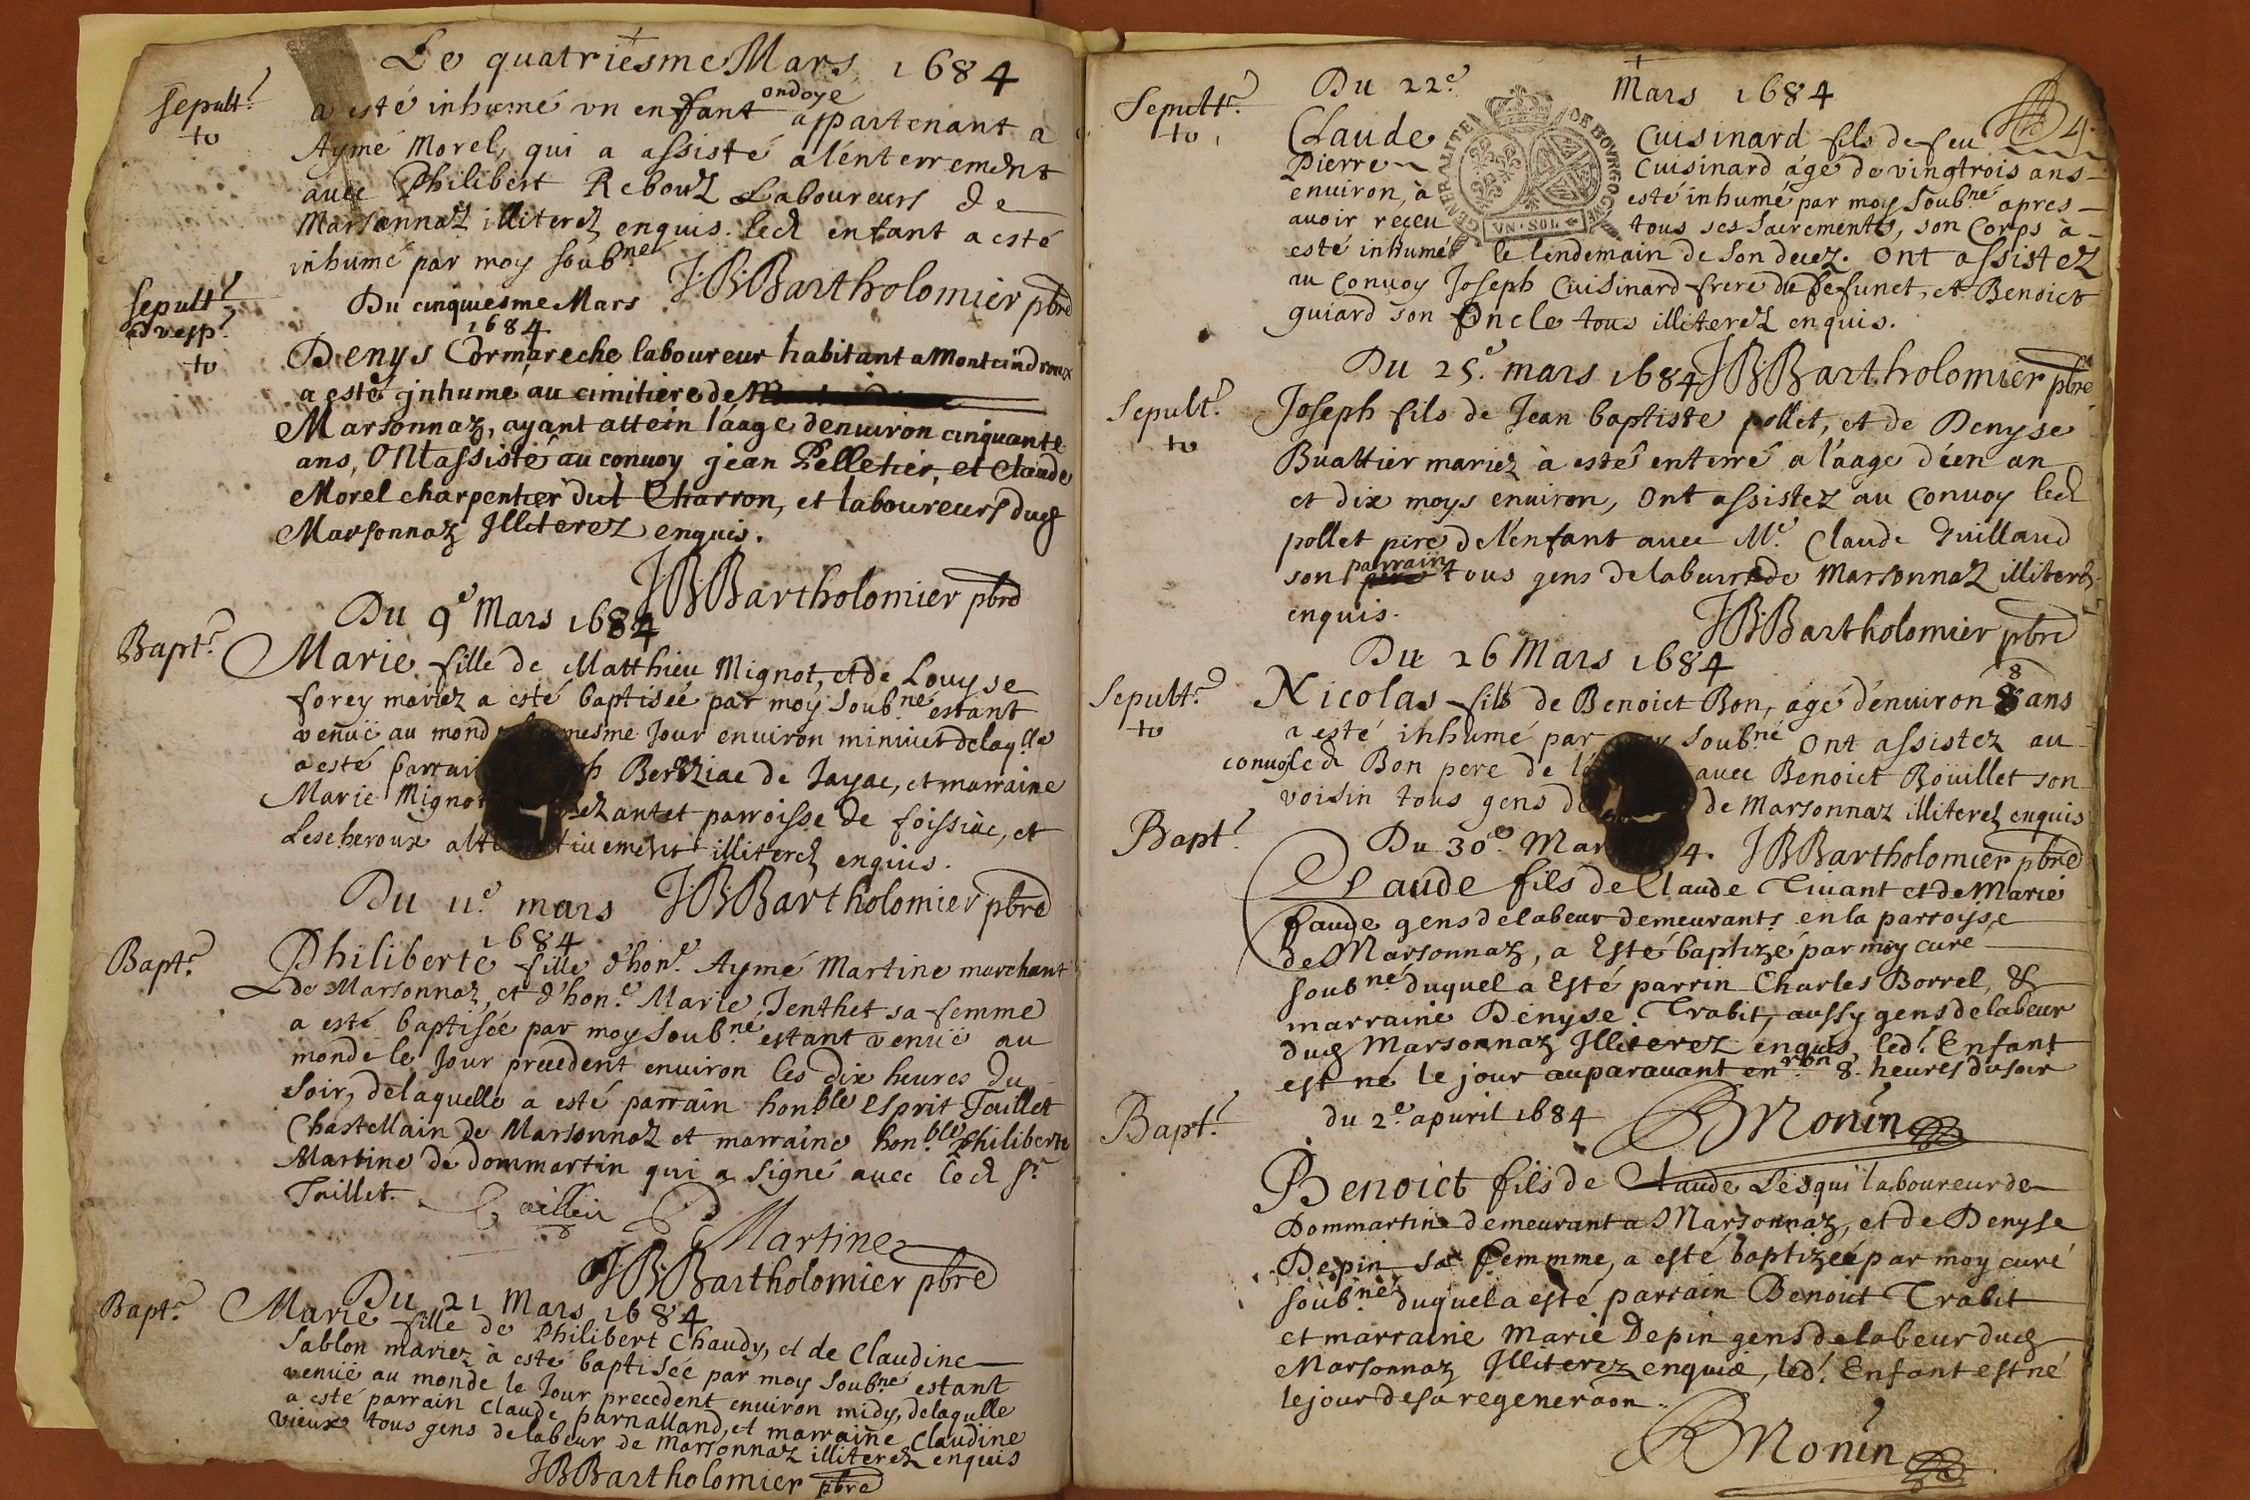 Le quatriesme Mars 1684
Sepult.e
to
a esté inhumé vn enfant ondoye appartenant a
Aymé Morel, qui a assisté a l'enterrement
auec Philibert Reboux Laboureurs de
Marsonnaz illiterez enquis. led enfant a esté
inhumé par moy soub.né
JBBartholomier pbre
Sepult.e
ad vesp.e
to
Du cinquiesme Mars
1684
Denys Cormareche laboureur habitant a Montcindroux
a esté jnhume au cimitiere de
Marsonnaz, ayant attein l'aage denuiron cinquante
ans, Ont assisté au conuoy jean Pelletier, et Claude
Morel charpentier dut Charron, et laboureurs dud
Marsonnaz Illiterez enquis.
JBBartholomier pbre
Du 9e Mars 1684
Bapt.e
Marie fille de Matthieu Mignot, et de Louyse
forey mariez a esté baptisée par moy soub.né estant
venuë au mond mesme Jour enuiron minuit delaqlle
a esté parrai h Berziac de Jayac, et marraine
Marie Mignot et parroisse de foissiac, et
Lescheroux alt tiuement illiterez enquis.
JBBartholomier pbre
Du 11e mars
1684
Bapt.e
Philiberte fille d'hon.e Aymé Martine marchant
de Marsonnaz, et d'hon.e Marie Jenthet sa femme
a esté baptisée par moy soub.né estant venuë au
monde le Jour precedent enuiron les dix heures du
soir, delaquelle a esté parrain honble Esprit Taillet
Chastellain de Marsonnaz et marraine hon.ble Philiberte
Martine de dommartin qui a signé auec led Sr
Taillet.
P Martine
JBBartholomier pbre
Du 21 Mars 1684
Bapt.e
Marie fille de Philibert Chaudy, et de Claudine
Sablon mariez à esté baptisée par moy soub.né estant
venüe au monde le Jour precedent enuiron midy, delaqulle
a esté parrain Claude parnalland, et marraine Claudine
vieux tous gens delabeur de Marsonnaz illiterez enquis
JBBartholomier pbre
Du 22e Mars 1684
4.
Sepultr.e
to
GENERALITE DE BOVRGOGNE
VN·SOL
Claude Cuisinard fils de feu
Pierre Cuisinard âgé de vingtrois ans
enuiron, à esté inhumé par moy soub.né apres
auoir reçeu tous ses sacrements, son Corps à
esté inhumé le lendemain de son decez. Ont assistez
au Conuoy Joseph Cuisinard frere du defunct, et Benoict
guiard son Oncle tous illiterez enquis.
JBBartholomier pbre
Du 25e mars 1684
Sepult.e
to
Joseph fils de Jean baptiste pollet, et de Denyse
Buattier mariez à esté enterré a l'aage d'un an
et dix moys enuiron, Ont assistez au Conuoy led
pollet pere de l'enfant auec Me. Claude Guilland
son parrain tous gens delabeur de Marsonnaz illiterez
enquis.
JBBartholomier pbre
Du 26 Mars 1684
Sepultr.e
to
Nicolas fils de Benoict Bon, agé d'enuiron 8 ans
a esté inhumé par soub.né Ont assistez au
conuoy led Bon pere de l auec Benoict Boüillet son
voisin tous gens de de Marsonnaz illiterez enquis
JBBartholomier pbre
Bapt.e
Du 30e Mar 4.
Claude fils de Claude Tiuant et de Marie
faude gens delabeur demeurants en la parroysse
de Marsonnaz, a Esté baptizé par moy curé
soub.né duquel a Esté parrin Charles Borrel, &
marraine Denyse Trabit, aussy gens de labeur
dud Marsonnaz Illiterez enquis, led. Enfant
est né le jour auparauant enuiron 8. heures du soir
Monin
du 2e apuril 1684
Bapt.e
Benoict fils de Claude Lesqui laboureur de
Dommartin demeurant a Marsonnaz, et de Denyse
Depin sa femmme, a esté baptizeé par moy curé
soub.né duquel a esté parrain Benoict Trabit
et marraine Marie Depin gens de labeur dud
Marsonnaz Illiterez enquis, led. Enfant est né
le jour de sa regeneraon.
Monin